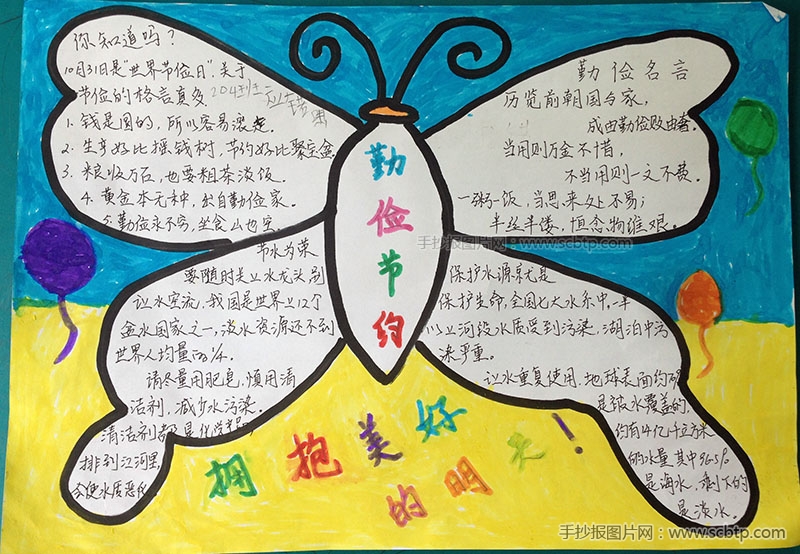 你知道吗？
10月31日是"世界节俭日"关于
节俭的格言真多
1. 钱是圆的，所以容易滚走。
2. 生产好比摇钱树，节约好比聚宝盆
3. 粮收万石，也要粗茶淡饭。
4. 黄金本无种，出自勤俭家。
5. 勤俭永不穷，坐食山也空。
勤俭名言
历览前朝国与家，
成由勤俭败由奢。
当用则万金不惜，
不当用则一文不费。
一粥一饭，当思来处不易；
半丝半缕，恒念物维艰。
勤
俭
节
约
节水为荣
要随时关上水龙头别
让水空流，我国是世界上12个
贫水国家之一，淡水资源还不到
世界人均量的1/4。
请尽量用肥皂，慎用清
洁剂，减少水污染。
清洁剂都是化学
排到江河里，
会使水质恶化。
保护水源就是
保护生命，全国七大水系中，一半
以上河段水质受到污染，湖泊中污
染严重。
让水重复使用，地球表面约
是被水覆盖的，
约有14亿千立方米
的水量其中96.5%
是海水，剩下的
是淡水。
拥抱美好
的明天！
手抄报图片网：www.scbtp.com
手抄报图片网：www.scbtp.com